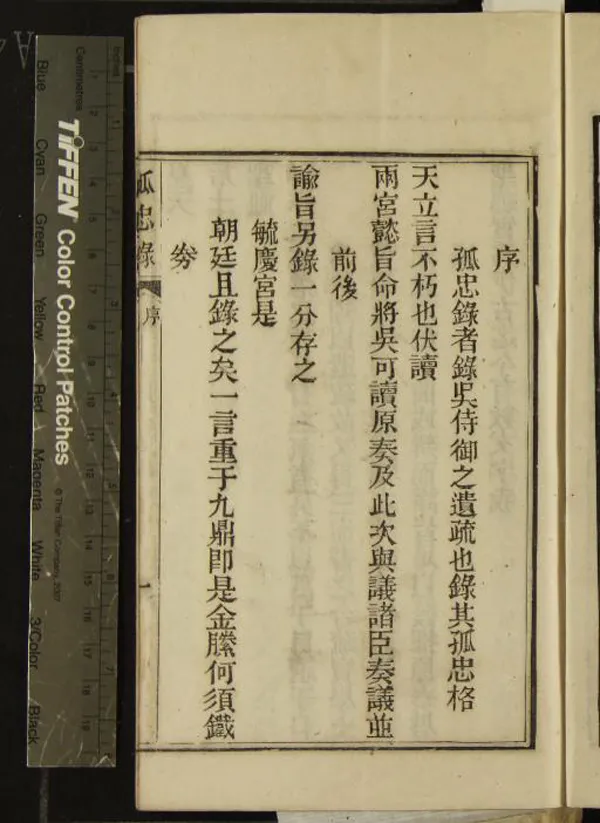 序
孤忠錄者錄吳侍御之遺疏也錄其孤忠格
天立言不朽也伏讀
兩宮懿旨命將吳可讀原奏及此次與議諸臣奏議並
前後
諭旨另錄一分存之
毓慶宮是
朝廷且錄之矣一言重于九鼎卽是金縢何須鐵
劵
孤忠錄
序
一
TIFFEN Color Control Patches
© The Tiffen Company, 2007
Centimetres
Inches
Blue
Cyan
Green
Yellow
Red
Magenta
White
3/Color
Black